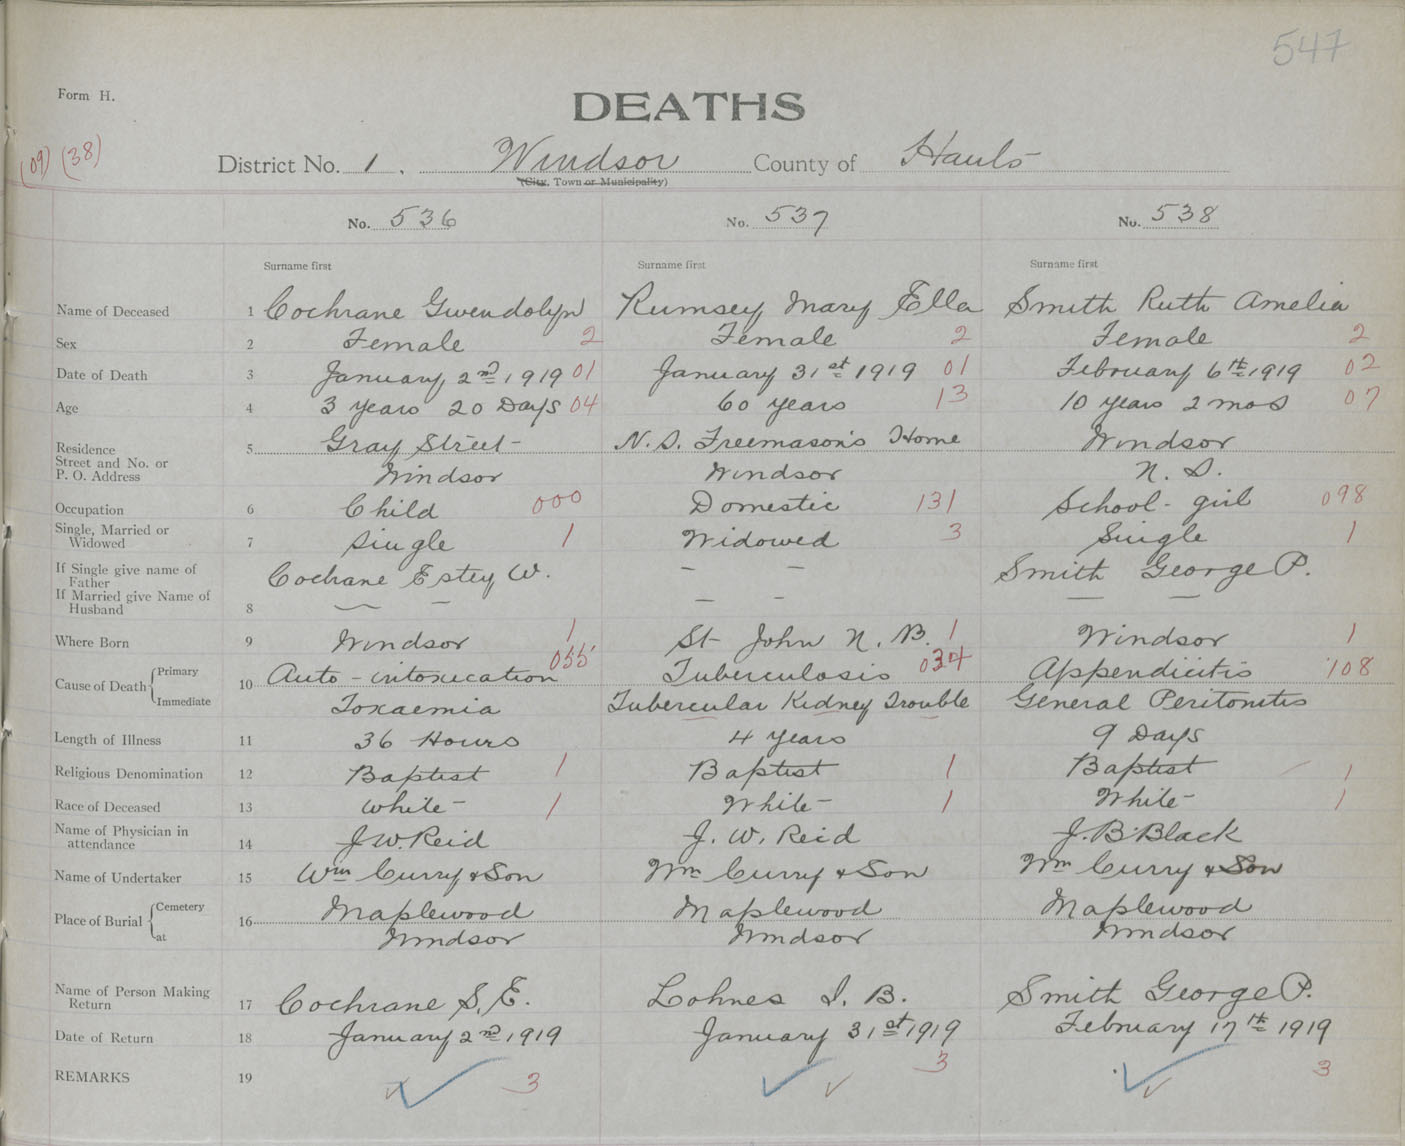 547
Form H.
DEATHS
(09) (38)
District No. 1. Windsor County of Hants
(City, Town or Municipality)
No. 536 No. 537 No. 538
Surname first Surname first Surname first
Name of Deceased 1 Cochrane Gwendolyn Rumsey Mary Ella Smith Ruth Amelia
Sex 2 Female 2 Female 2 Female 2
Date of Death 3 January, 2nd 1919 01 January 31st 1919 01 February 6th 1919 02
Age 4 3 years 20 Days 04 60 years 13 10 years 2 mos 07
Residence 5 Gray Street N. S. Freemason's Home Windsor
Street and No. or
P. O. Address Windsor Windsor N. S.
Occupation 6 Child 000 Domestic 131 School-girl 098
Single, Married or
Widowed 7 Single 1 Widowed 3 Single 1
If Single give name of
Father Cochrane Estey W. — — Smith George P.
If Married give Name of
Husband 8 — — — — — —
Where Born 9 Windsor 1 St John N. B. 1 Windsor 1
Cause of Death Primary 10 Auto-intoxication 055 Tuberculosis 034 Appendicitis 108
Immediate Toxaemia Tubercular Kidney Trouble General Peritonitis
Length of Illness 11 36 Hours 4 years 9 Days
Religious Denomination 12 Baptist 1 Baptist 1 Baptist 1
Race of Deceased 13 White 1 White 1 White 1
Name of Physician in
attendance 14 J. W. Reid J. W. Reid J. B. Black
Name of Undertaker 15 Wm Curry & Son Wm Curry & Son Wm Curry & Son
Place of Burial Cemetery 16 Maplewood Maplewood Maplewood
at Windsor Windsor Windsor
Name of Person Making
Return 17 Cochrane S. E. Lohnes I. B. Smith George P.
Date of Return 18 January 2nd 1919 January 31st 1919 February 17th 1919
REMARKS 19 3 3 3